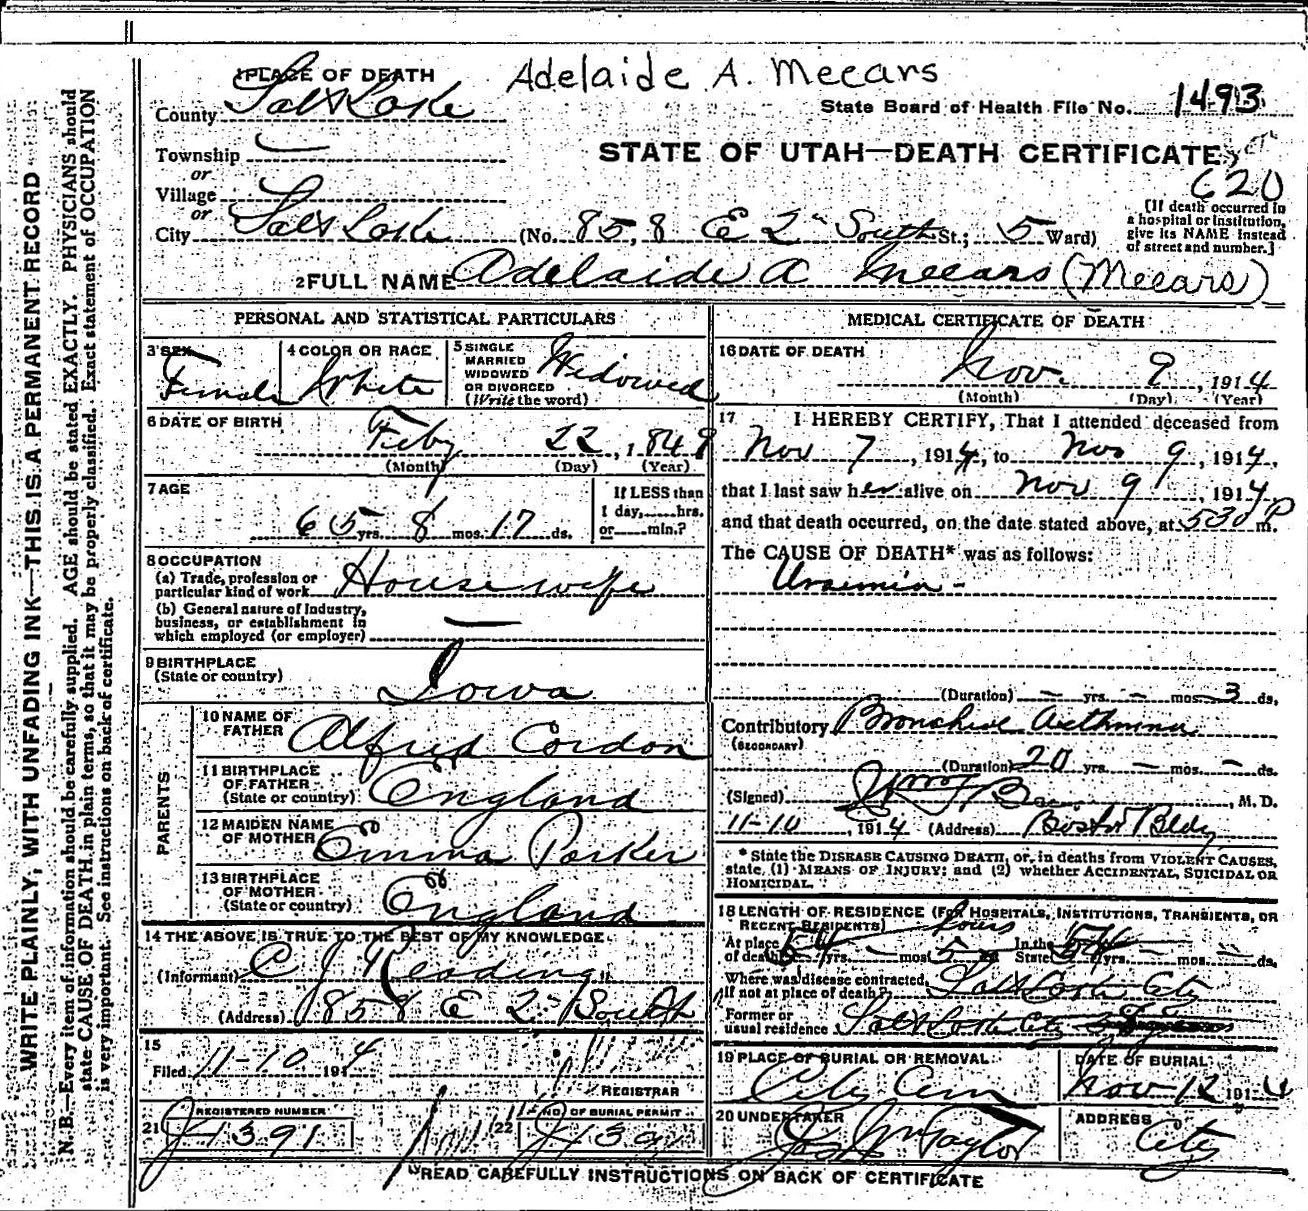 Adelaide A. Mecars
1 PLACE OF DEATH
County Salt Lake
State Board of Health File No. 1493
Township
or
Village
or
STATE OF UTAH—DEATH CERTIFICATE
620
City Salt Lake (No. 858 E 2" South St.; 5 Ward)
[If death occurred in
a hospital or institution,
give its NAME instead
of street and number.]
2 FULL NAME Adelaide A Mecars (Mecars)
PERSONAL AND STATISTICAL PARTICULARS
3 SEX Female
4 COLOR OR RACE White
5 SINGLE
MARRIED
WIDOWED
OR DIVORCED
(Write the word) Widowed
6 DATE OF BIRTH Feby 22, 1849
(Month) (Day) (Year)
7 AGE
65 yrs. 8 mos. 17 ds.
If LESS than
1 day, hrs.
or min.?
8 OCCUPATION
(a) Trade, profession or
particular kind of work Housewife
(b) General nature of Industry,
business, or establishment in
which employed (or employer)
9 BIRTHPLACE
(State or country) Iowa
PARENTS
10 NAME OF
FATHER Alfred Cordon
11 BIRTHPLACE
OF FATHER
(State or country) England
12 MAIDEN NAME
OF MOTHER Emma Parker
13 BIRTHPLACE
OF MOTHER
(State or country) England
14 THE ABOVE IS TRUE TO THE BEST OF MY KNOWLEDGE
(Informant) C J Reading
(Address) 858 E 2" South
15
Filed 11-10 1914
REGISTRAR
21 REGISTERED NUMBER
J 1391
22 NO. OF BURIAL PERMIT
J 139
MEDICAL CERTIFICATE OF DEATH
16 DATE OF DEATH
Nov. 9, 1914
(Month) (Day) (Year)
17 I HEREBY CERTIFY, That I attended deceased from
Nov 7, 1914, to Nov 9, 1914,
that I last saw her alive on Nov 9, 1914
and that death occurred, on the date stated above, at 530 P m.
The CAUSE OF DEATH* was as follows:
Uraemia -
(Duration) — yrs. — mos. 3 ds.
Contributory Bronchial Asthma
(SECONDARY)
(Duration) 20 yrs. — mos. — ds.
(Signed) , M. D.
11-10, 1914 (Address) Boston Bldg
* State the DISEASE CAUSING DEATH, or, in deaths from VIOLENT CAUSES,
state (1) MEANS OF INJURY; and (2) whether ACCIDENTAL, SUICIDAL OR
HOMICIDAL.
18 LENGTH OF RESIDENCE (FOR HOSPITALS, INSTITUTIONS, TRANSIENTS, OR
RECENT RESIDENTS) hours
At place
of death 54 yrs. — mos. 5 ds. In the
State 54 yrs. — mos. — ds.
Where was disease contracted,
If not at place of death? Salt Lake City
Former or
usual residence Salt Lake City
19 PLACE OF BURIAL OR REMOVAL
City Cem
DATE OF BURIAL
Nov 12 1914
20 UNDERTAKER
Jos Wm Taylor
ADDRESS
City
READ CAREFULLY INSTRUCTIONS ON BACK OF CERTIFICATE
WRITE PLAINLY, WITH UNFADING INK—THIS IS A PERMANENT RECORD
N. B.—Every item of information should be carefully supplied. AGE should be stated EXACTLY. PHYSICIANS should
state CAUSE OF DEATH in plain terms, so that it may be properly classified. Exact statement of OCCUPATION
is very important. See instructions on back of certificate.